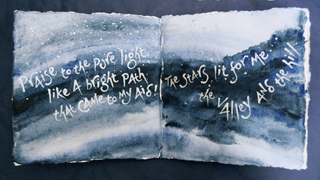 Praise to the pure light
like a bright path
that came to my aid!
The stars lit for me
the valley and the hill